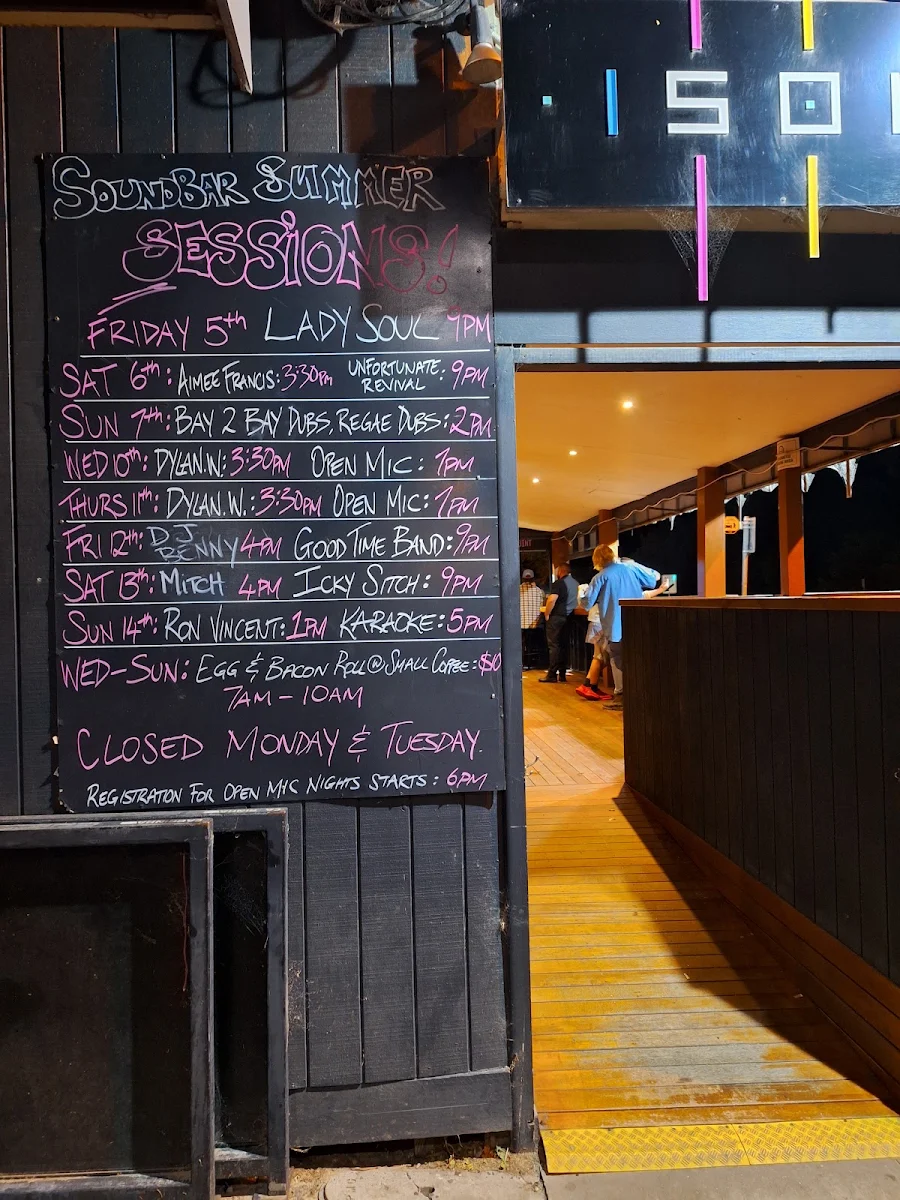 SOUNDBAR SUMMER
SESSIONS!
FRIDAY 5th LADY SOUL 9PM
SAT 6th: AIMEE FRANCIS: 3:30PM UNFORTUNATE REVIVAL: 9PM
SUN 7th: BAY 2 BAY DUBS, REGAE DUBS: 2PM
WED 10th: DYLAN.W: 3:30PM OPEN MIC: 7PM
THURS 11th: DYLAN.W.: 3:30PM OPEN MIC: 7PM
FRI 12th: DJ BENNY 4PM GOOD TIME BAND: 9PM
SAT 13th: MITCH 4PM ICKY SITCH: 9PM
SUN 14th: RON VINCENT: 1PM KARAOKE: 5PM
WED-SUN: EGG & BACON ROLL @ SMALL COFFEE: $10
7AM - 10AM
CLOSED MONDAY & TUESDAY.
REGISTRATION FOR OPEN MIC NIGHTS STARTS: 6PM
SO